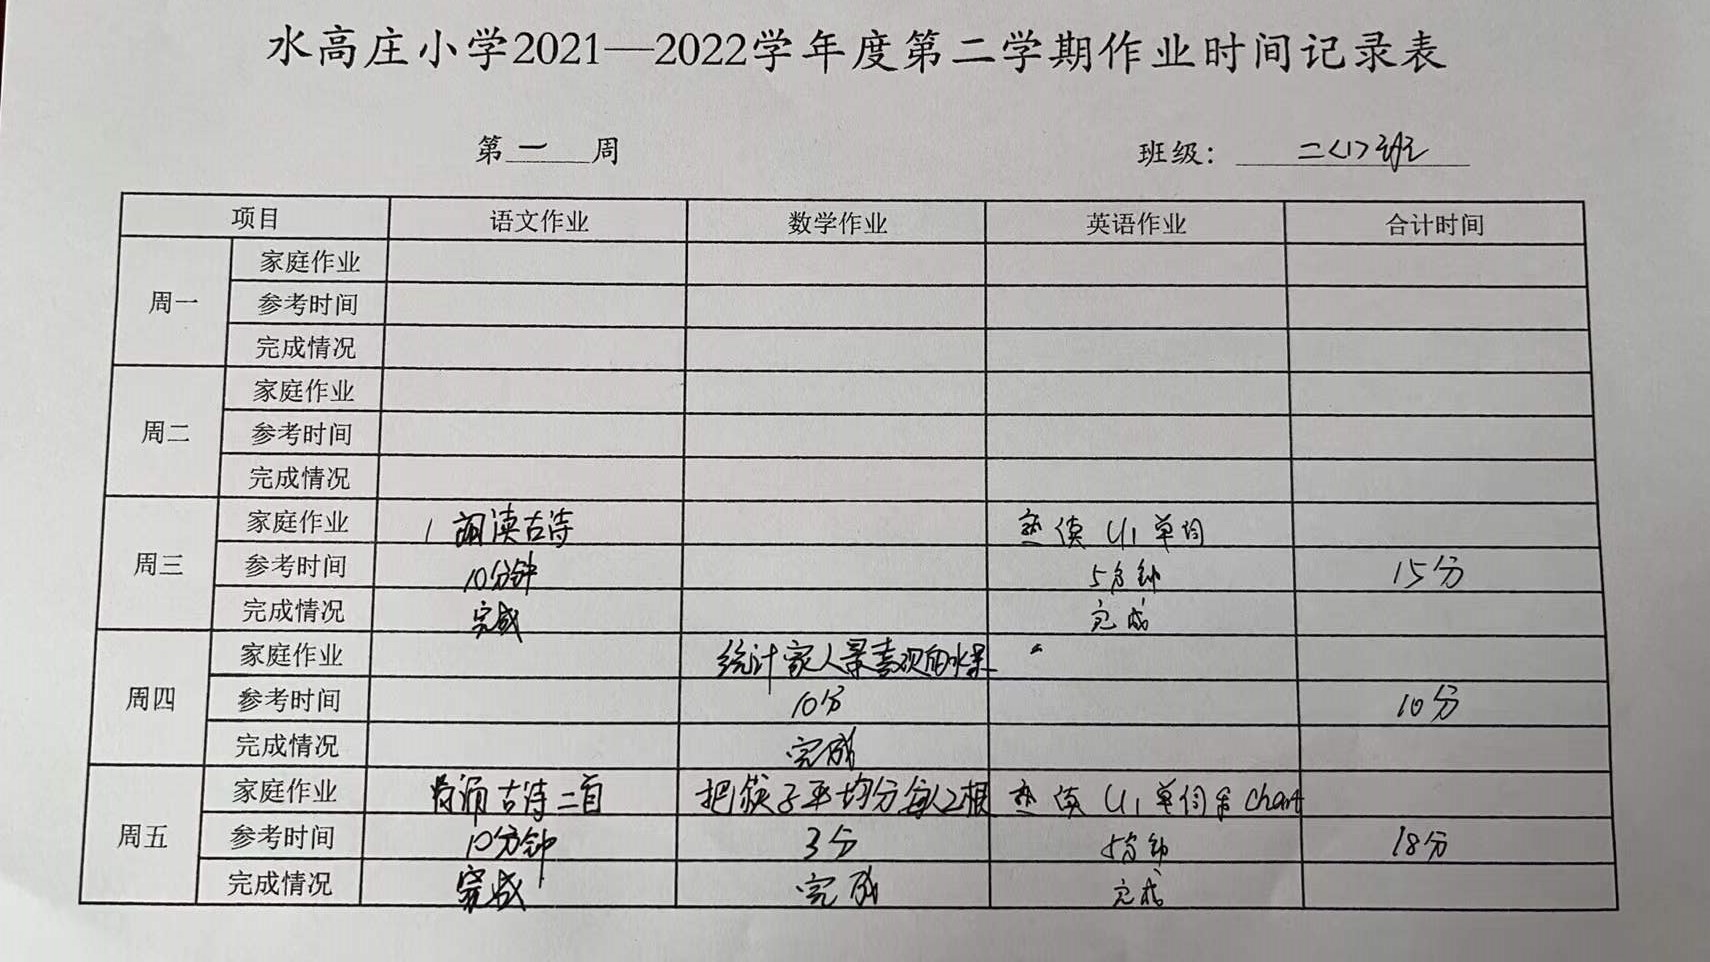 水高庄小学2021—2022学年度第二学期作业时间记录表
第一周 班级：二<1>班
项目 语文作业 数学作业 英语作业 合计时间
周一 家庭作业
参考时间
完成情况
周二 家庭作业
参考时间
完成情况
周三 家庭作业 1 阅读古诗 熟读 U1 单词
参考时间 10分钟 5分钟 15分
完成情况 完成 完成
周四 家庭作业 统计家人最喜欢的水果
参考时间 10分 10分
完成情况 完成
周五 家庭作业 背诵古诗二首 把筷子平均分每人2根 熟读 U1 单词和 chant
参考时间 10分钟 3分 5分钟 18分
完成情况 完成 完成 完成